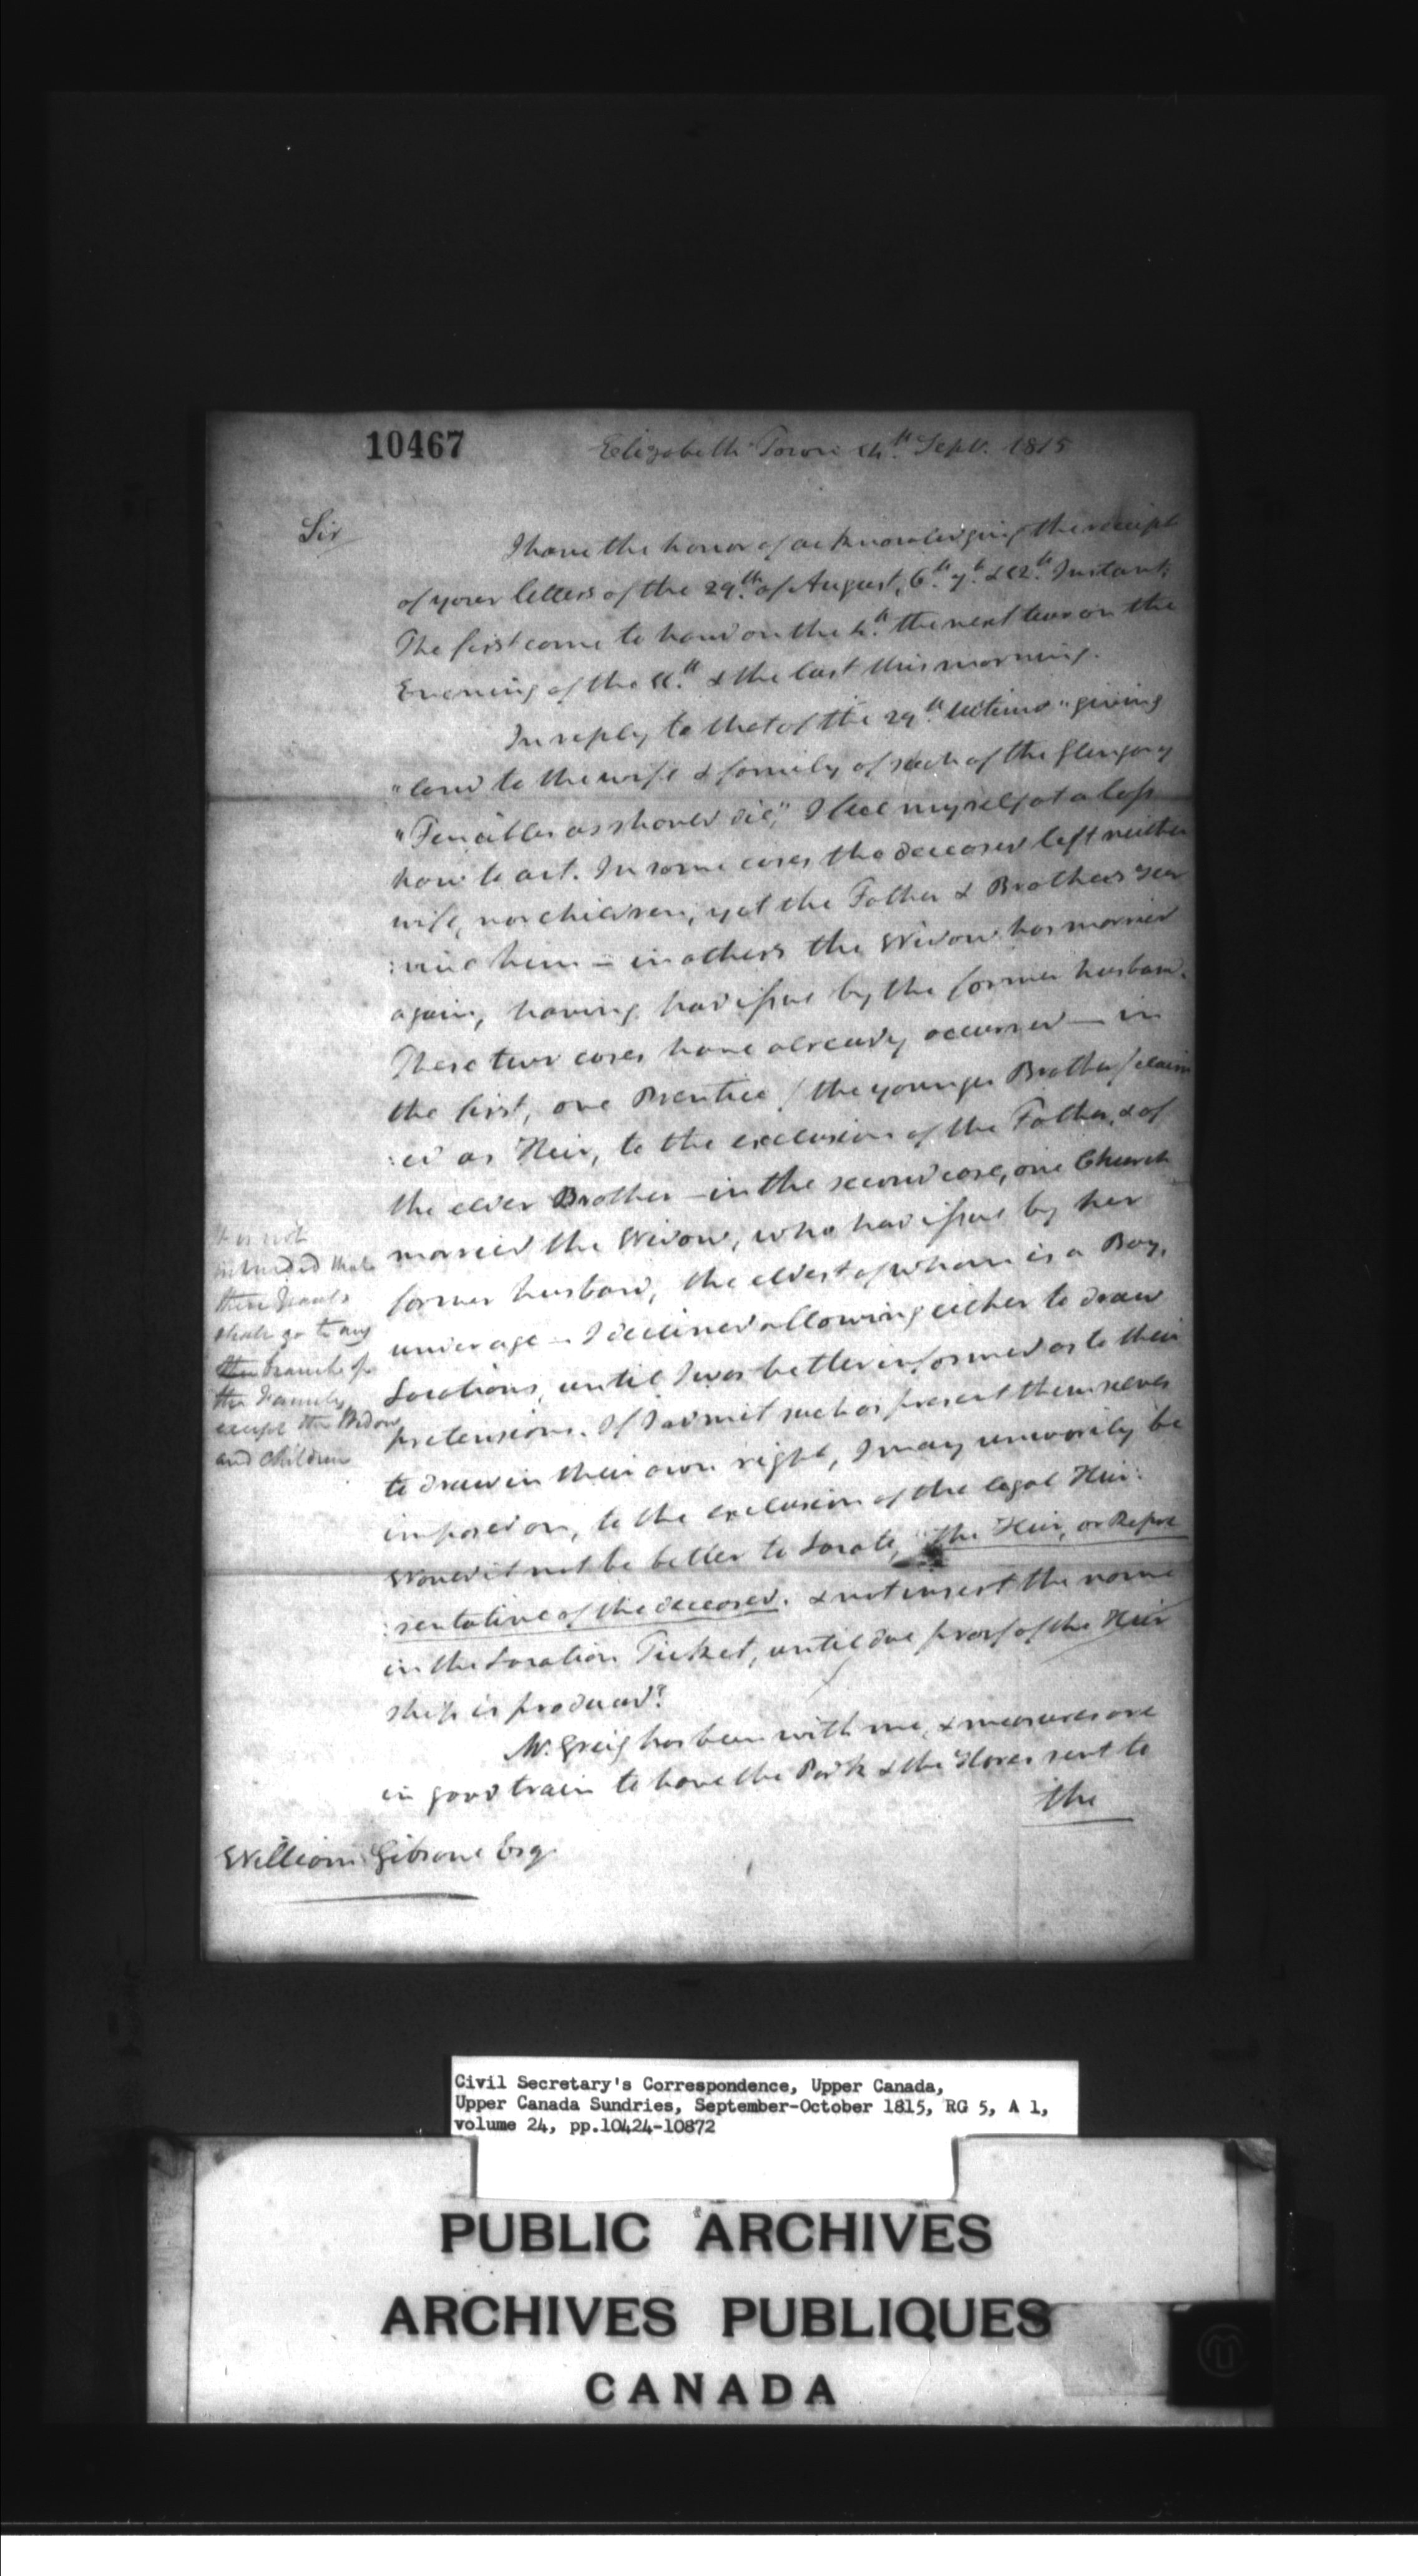 10467
Elizabeth Town 14th Sept. 1815
Sir
I have the honor of acknowledging the receipt
of your letters of the 29th of August, 6th 7th & 12th Instant,
The first came to hand on the 4th the next two on the
Evening of the 11th & the last this morning.
In reply to that of the 29th Ultimo "giving
"land to the wife & family of such of the Glengary
"Fencibles as should die," I feel myself at a loss
how to act. In some cases the deceased left neither
wife, nor children, yet the Father & Brothers sur
:vive him – in others the Widow has married
again, having had issue by the former husband.
These two cases have already occurred — in
the first, one Prentice / the younger Brother / claim
:ed as Heir, to the exclusion of the Father, & of
the elder Brother – in the second case, one Church
married the Widow, who had issue by her
former husband, the eldest of whom is a Boy,
under age – I declined allowing either to draw
Locations, until I was better informed as to their
pretensions. If I admit such as present themselves
to draw in their own right, I may unwarily be
imposed on, to the exclusion of the legal Heir.
Would it not be better to Locate, the Heir, or Repre
:sentative of the deceased. & not insert the name
in the Location Ticket, until due proof of the Heir
ship is produced?
Mr. Greig has been with me, & measures are
in good train to have the Pork & the Stores sent to
the
William Gibsone Esq.
It is not
intended that
these Grants
shall go to any
the branch of
the Family
except the Widow
and Children
Civil Secretary's Correspondence, Upper Canada,
Upper Canada Sundries, September-October 1815, RG 5, A 1,
volume 24, pp.10424-10872
PUBLIC ARCHIVES
ARCHIVES PUBLIQUES
CANADA